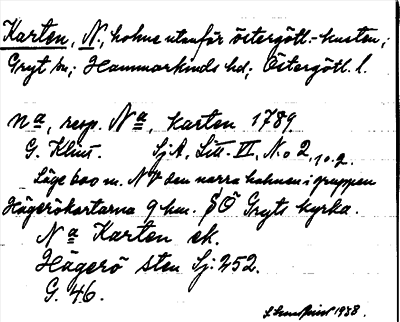 Karten, N., holme utanför Östergötl.-kusten;
Gryt sn; Hammarkinds hd; Östergötl. l.
Na, resp. Na, karten 1789.
G. Klint. SjA, Litt. VI, No 2, 10.2.
Läge 600 m. NV den norra holmen i gruppen
Hägerökartarna 9 km. SÖ Gryts kyrka.
Na Karten ek.
Hägerö sten Sj. 252.
G. 46.
1938.